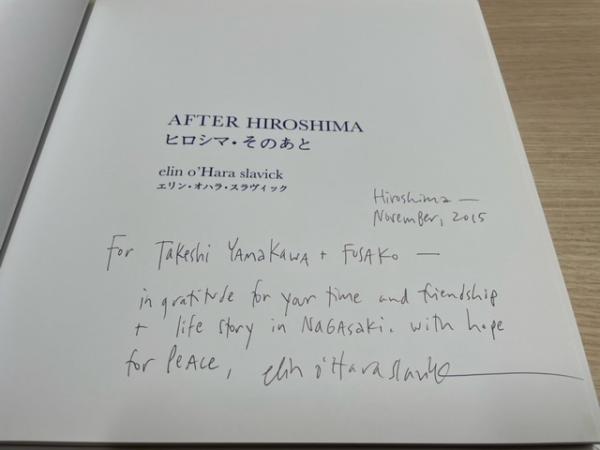 AFTER HIROSHIMA
ヒロシマ・そのあと
elin o'Hara slavick
エリン・オハラ・スラヴィック
Hiroshima —
November, 2015
For Takeshi YAMAKAWA + FUSAKO —
in gratitude for your time and friendship
+ life story in NAGAsaki. with hope
for PEACE, elin o'Hara slavick